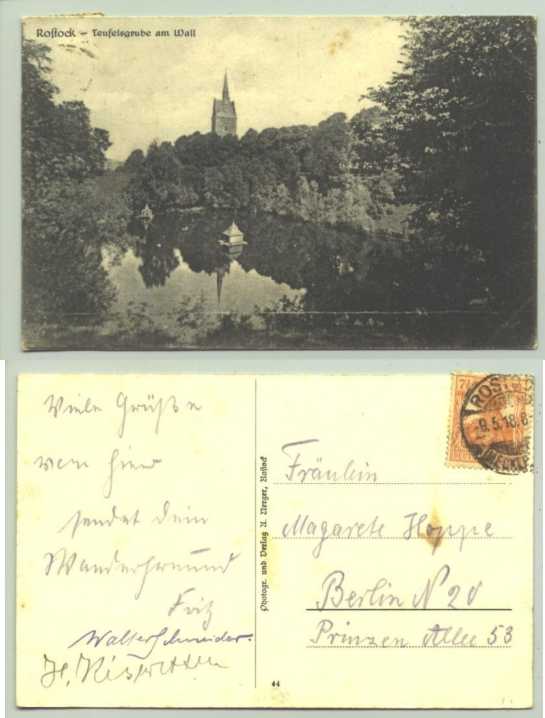 Rostock – Teufelsgrube am Wall
Viele Grüße
von hier
sendet dein
Wanderfreund
Fritz
Walter Schneider.
H.
Photogr. und Verlag A. Neeger, Rostock
44
7½
ROSTOCK
-9.5.18.6-
(MECKL)
Fräulein
Magarete Hoppe
Berlin N 20
Prinzen Allee 53